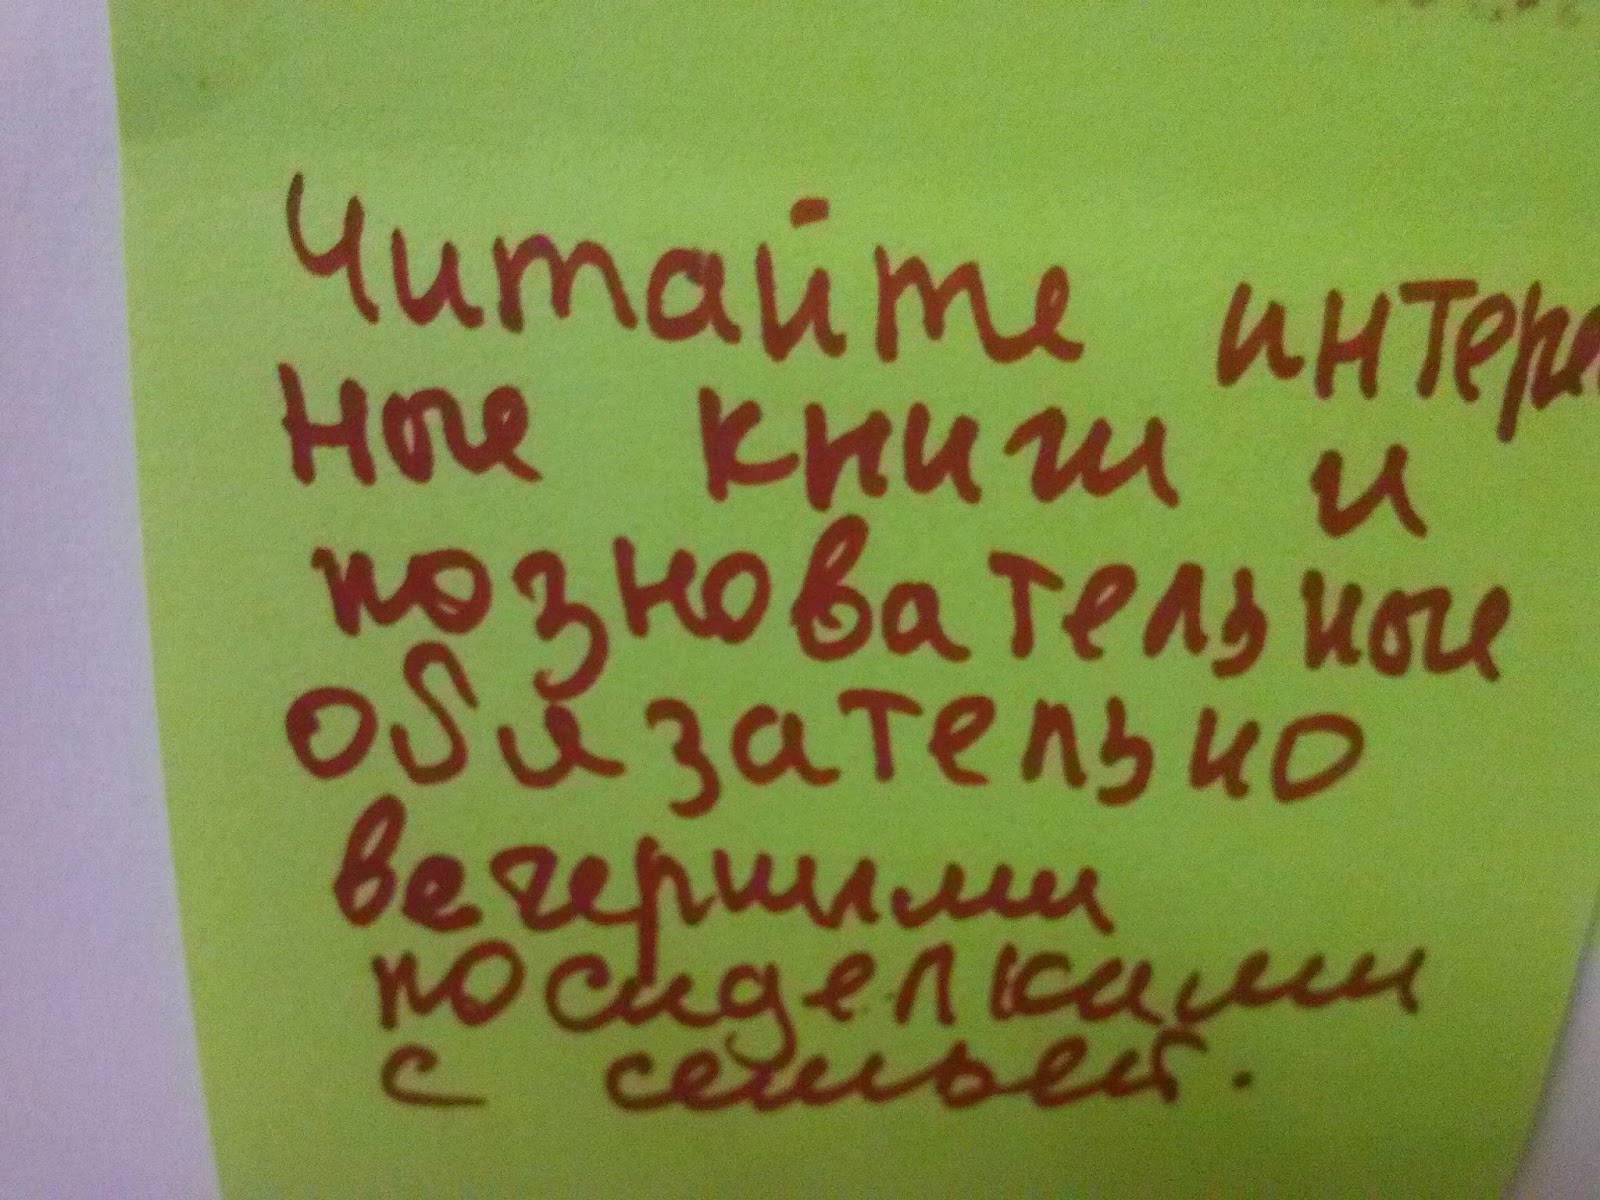 Читайте интере
ные книги и
позновательные
обязательно
вечерними
посиделками
с семьей.